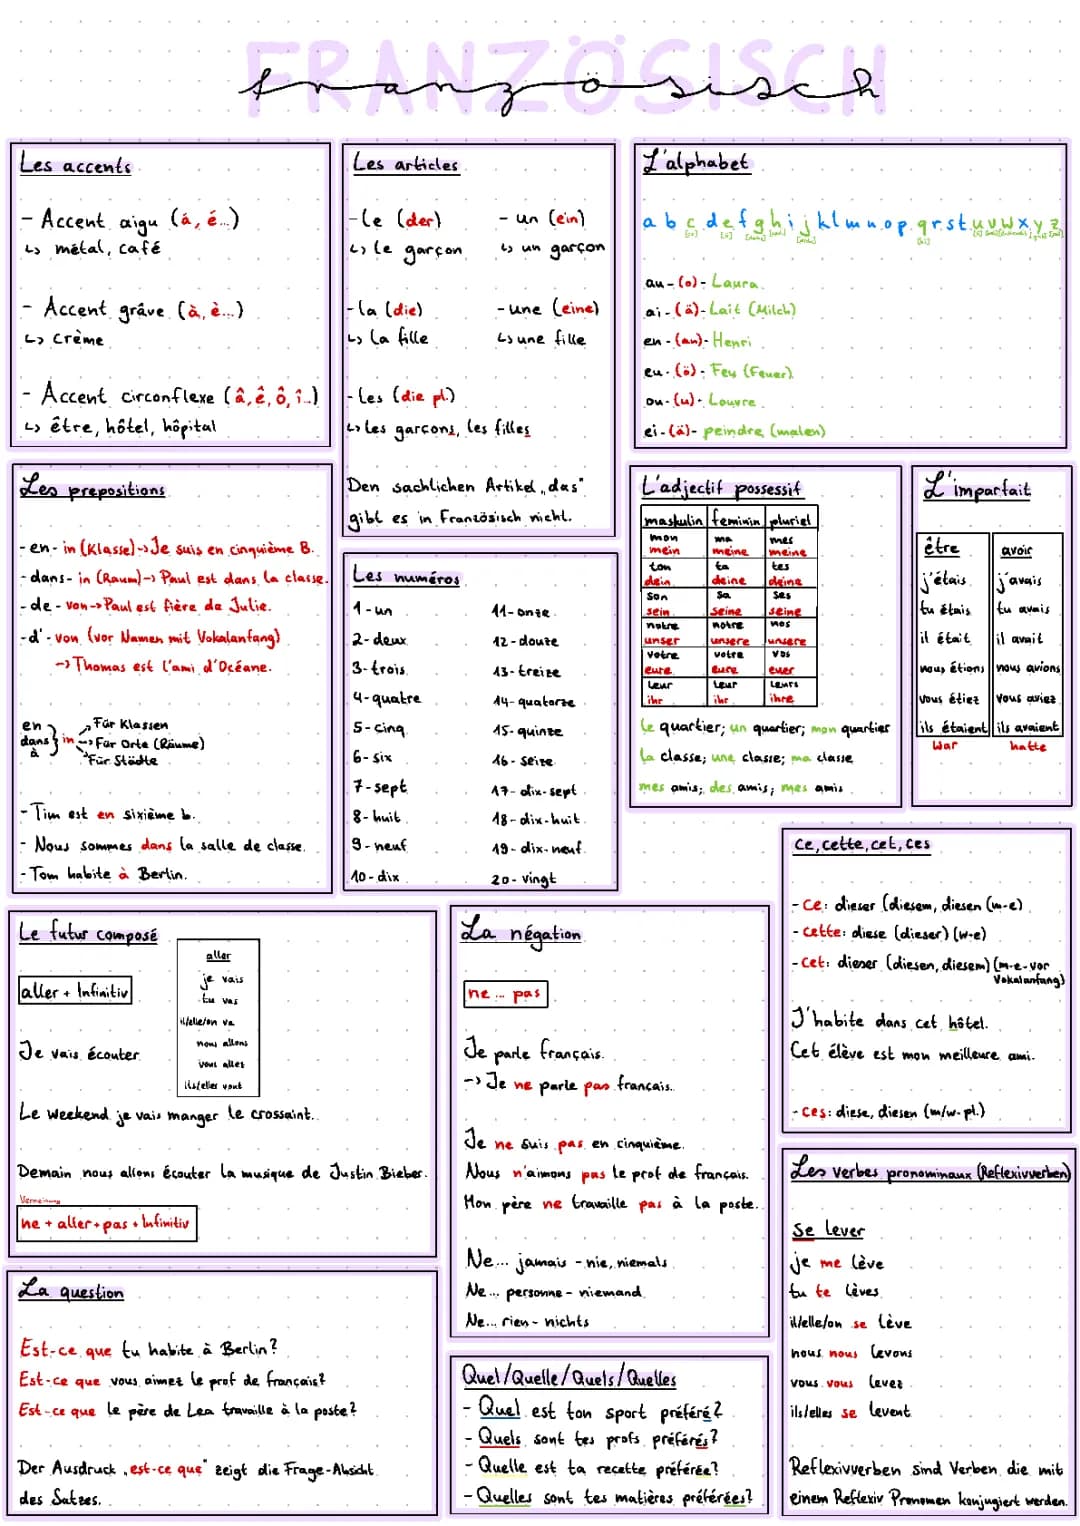 FRANZÖSISCH
französisch
Les accents
- Accent aigu (á, é...)
↳ métal, café
- Accent grâve (à, è...)
↳ crème
- Accent circonflexe (â, ê, ô, î...)
↳ être, hôtel, hôpital
Les articles
- le (der) - un (ein)
↳ le garçon ↳ un garçon
- la (die) - une (eine)
↳ la fille ↳ une fille
- les (die pl.)
↳ les garçons, les filles
Den sachlichen Artikel „das"
gibt es in Französisch nicht.
L'alphabet
a b c d e f g h i j k l m n o p q r s t u v w x y z
au - (o) - Laura
ai - (ä) - Lait (Milch)
en - (an) - Henri
eu - (ö) - Feu (Feuer)
ou - (u) - Louvre
ei - (ä) - peindre (malen)
Les prepositions
- en - in (Klasse) -> Je suis en cinquième B.
- dans - in (Raum) -> Paul est dans la classe.
- de - von -> Paul est fière de Julie.
- d' - von (vor Namen mit Vokalanfang)
-> Thomas est l'ami d'Océane.
en
dans
à
in
Für Klassen
Für Orte (Räume)
Für Städte
- Tim est en sixième b.
- Nous sommes dans la salle de classe.
- Tom habite à Berlin.
Les numéros
1 - un 11 - onze
2 - deux 12 - douze
3 - trois 13 - treize
4 - quatre 14 - quatorze
5 - cinq 15 - quinze
6 - six 16 - seize
7 - sept 17 - dix-sept
8 - huit 18 - dix-huit
9 - neuf 19 - dix-neuf
10 - dix 20 - vingt
L'adjectif possessif
maskulin feminin pluriel
mon ma mes
mein meine meine
ton ta tes
dein deine deine
son sa ses
sein seine seine
notre notre nos
unser unsere unsere
votre votre vos
eure eure euer
leur leur leurs
ihr ihr ihre
le quartier; un quartier; mon quartier
la classe; une classe; ma classe
mes amis; des amis; mes amis
L'imparfait
être avoir
j'étais j'avais
tu étais tu avais
il était il avait
nous étions nous avions
vous étiez vous aviez
ils étaient ils avaient
war hatte
Ce, cette, cet, ces
- Ce: dieser (diesem, diesen (m-e)
- Cette: diese (dieser) (w-e)
- Cet: dieser (diesen, diesem) (m-e-vor
Vokalanfang)
J'habite dans cet hôtel.
Cet élève est mon meilleure ami.
- Ces: diese, diesen (m/w-pl.)
Le futur composé
aller + Infinitiv
aller
je vais
tu vas
il/elle/on va
nous allons
vous allez
ils/elles vont
Je vais écouter
Le weekend je vais manger le crossaint.
Demain nous allons écouter la musique de Justin Bieber.
Verneinung
ne + aller + pas + Infinitiv
La négation
ne ... pas
Je parle français.
-> Je ne parle pas français.
Je ne suis pas en cinquième.
Nous n'aimons pas le prof de francais.
Mon père ne travaille pas à la poste.
Ne... jamais - nie, niemals
Ne... personne - niemand
Ne... rien - nichts
Les verbes pronominaux (Reflexivverben)
se lever
je me lève
tu te lèves
il/elle/on se lève
nous nous levons
vous vous levez
ils/elles se levent
Reflexivverben sind Verben, die mit
einem Reflexiv Pronomen konjugiert werden.
La question
Est-ce que tu habite à Berlin?
Est-ce que vous aimez le prof de français?
Est-ce que le père de Lea travaille à la poste?
Der Ausdruck „est-ce que" zeigt die Frage-Absicht
des Satzes.
Quel/Quelle/Quels/Quelles
- Quel est ton sport préféré?
- Quels sont tes profs préférés?
- Quelle est ta recette préférée?
- Quelles sont tes matières préférées?